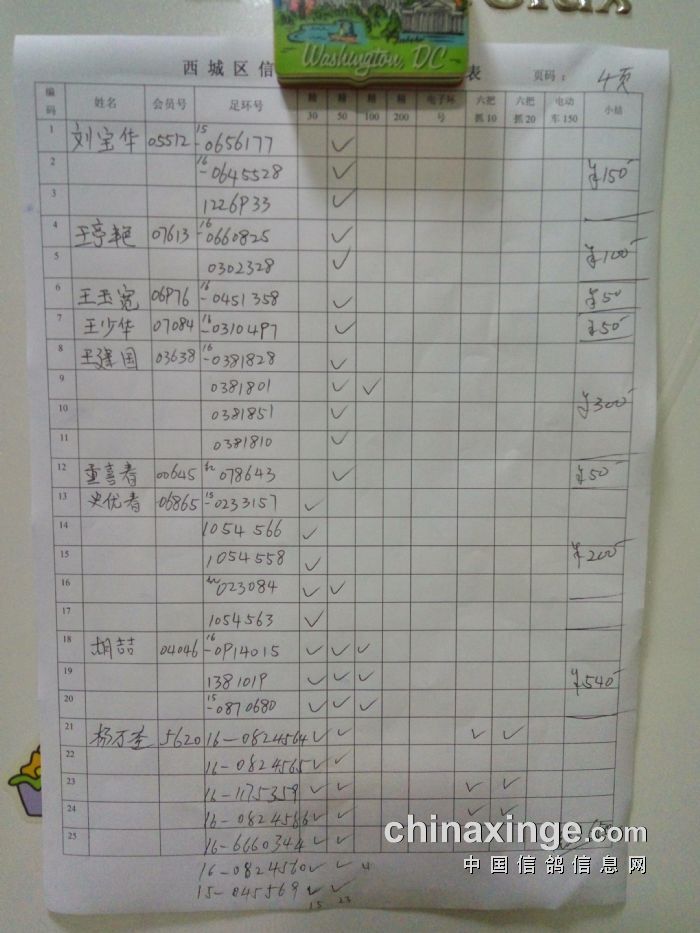 Washington, DC
西城区信 表 页码： 4页
编码 姓名 会员号 足环号 精30 精50 精100 精200 电子环号 六把抓10 六把抓20 电动车150 小结
1 刘宝华 05512 15-0656177 ✓
2 16-0645528 ✓ ¥150-
3 1226933 ✓
4 07613 16-0660825 ✓
5 0302328 ✓ ¥100-
6 王玉宽 06976 16-0451358 ✓ ¥50-
7 王少华 07084 16-0310497 ✓ ¥50-
8 王强国 03638 16-0381828 ✓
9 0381801 ✓ ✓
10 0381851 ✓ ¥300-
11 0381810 ✓
12 董喜春 00645 078643 ✓ ¥50-
13 史优者 06865 15-0233157 ✓
14 1054566 ✓
15 1054558 ✓ ¥200-
16 023084 ✓ ✓
17 1054563 ✓
18 胡喆 04046 16-0914015 ✓ ✓ ✓
19 1381019 ✓ ✓ ✓ ¥540-
20 15-0870680 ✓ ✓ ✓
21 杨万奎 5620 16-0824564 ✓ ✓ ✓ ✓
22 16-0824565 ✓ ✓
23 16-1175359 ✓ ✓ ✓ ✓
24 16-0824586 ✓ ✓ ✓ ✓
25 16-6660344 ✓ ✓
16-0824560 ✓ ✓ 4
15-045569 ✓ ✓
15 23
chinaxinge.com
中国信鸽信息网